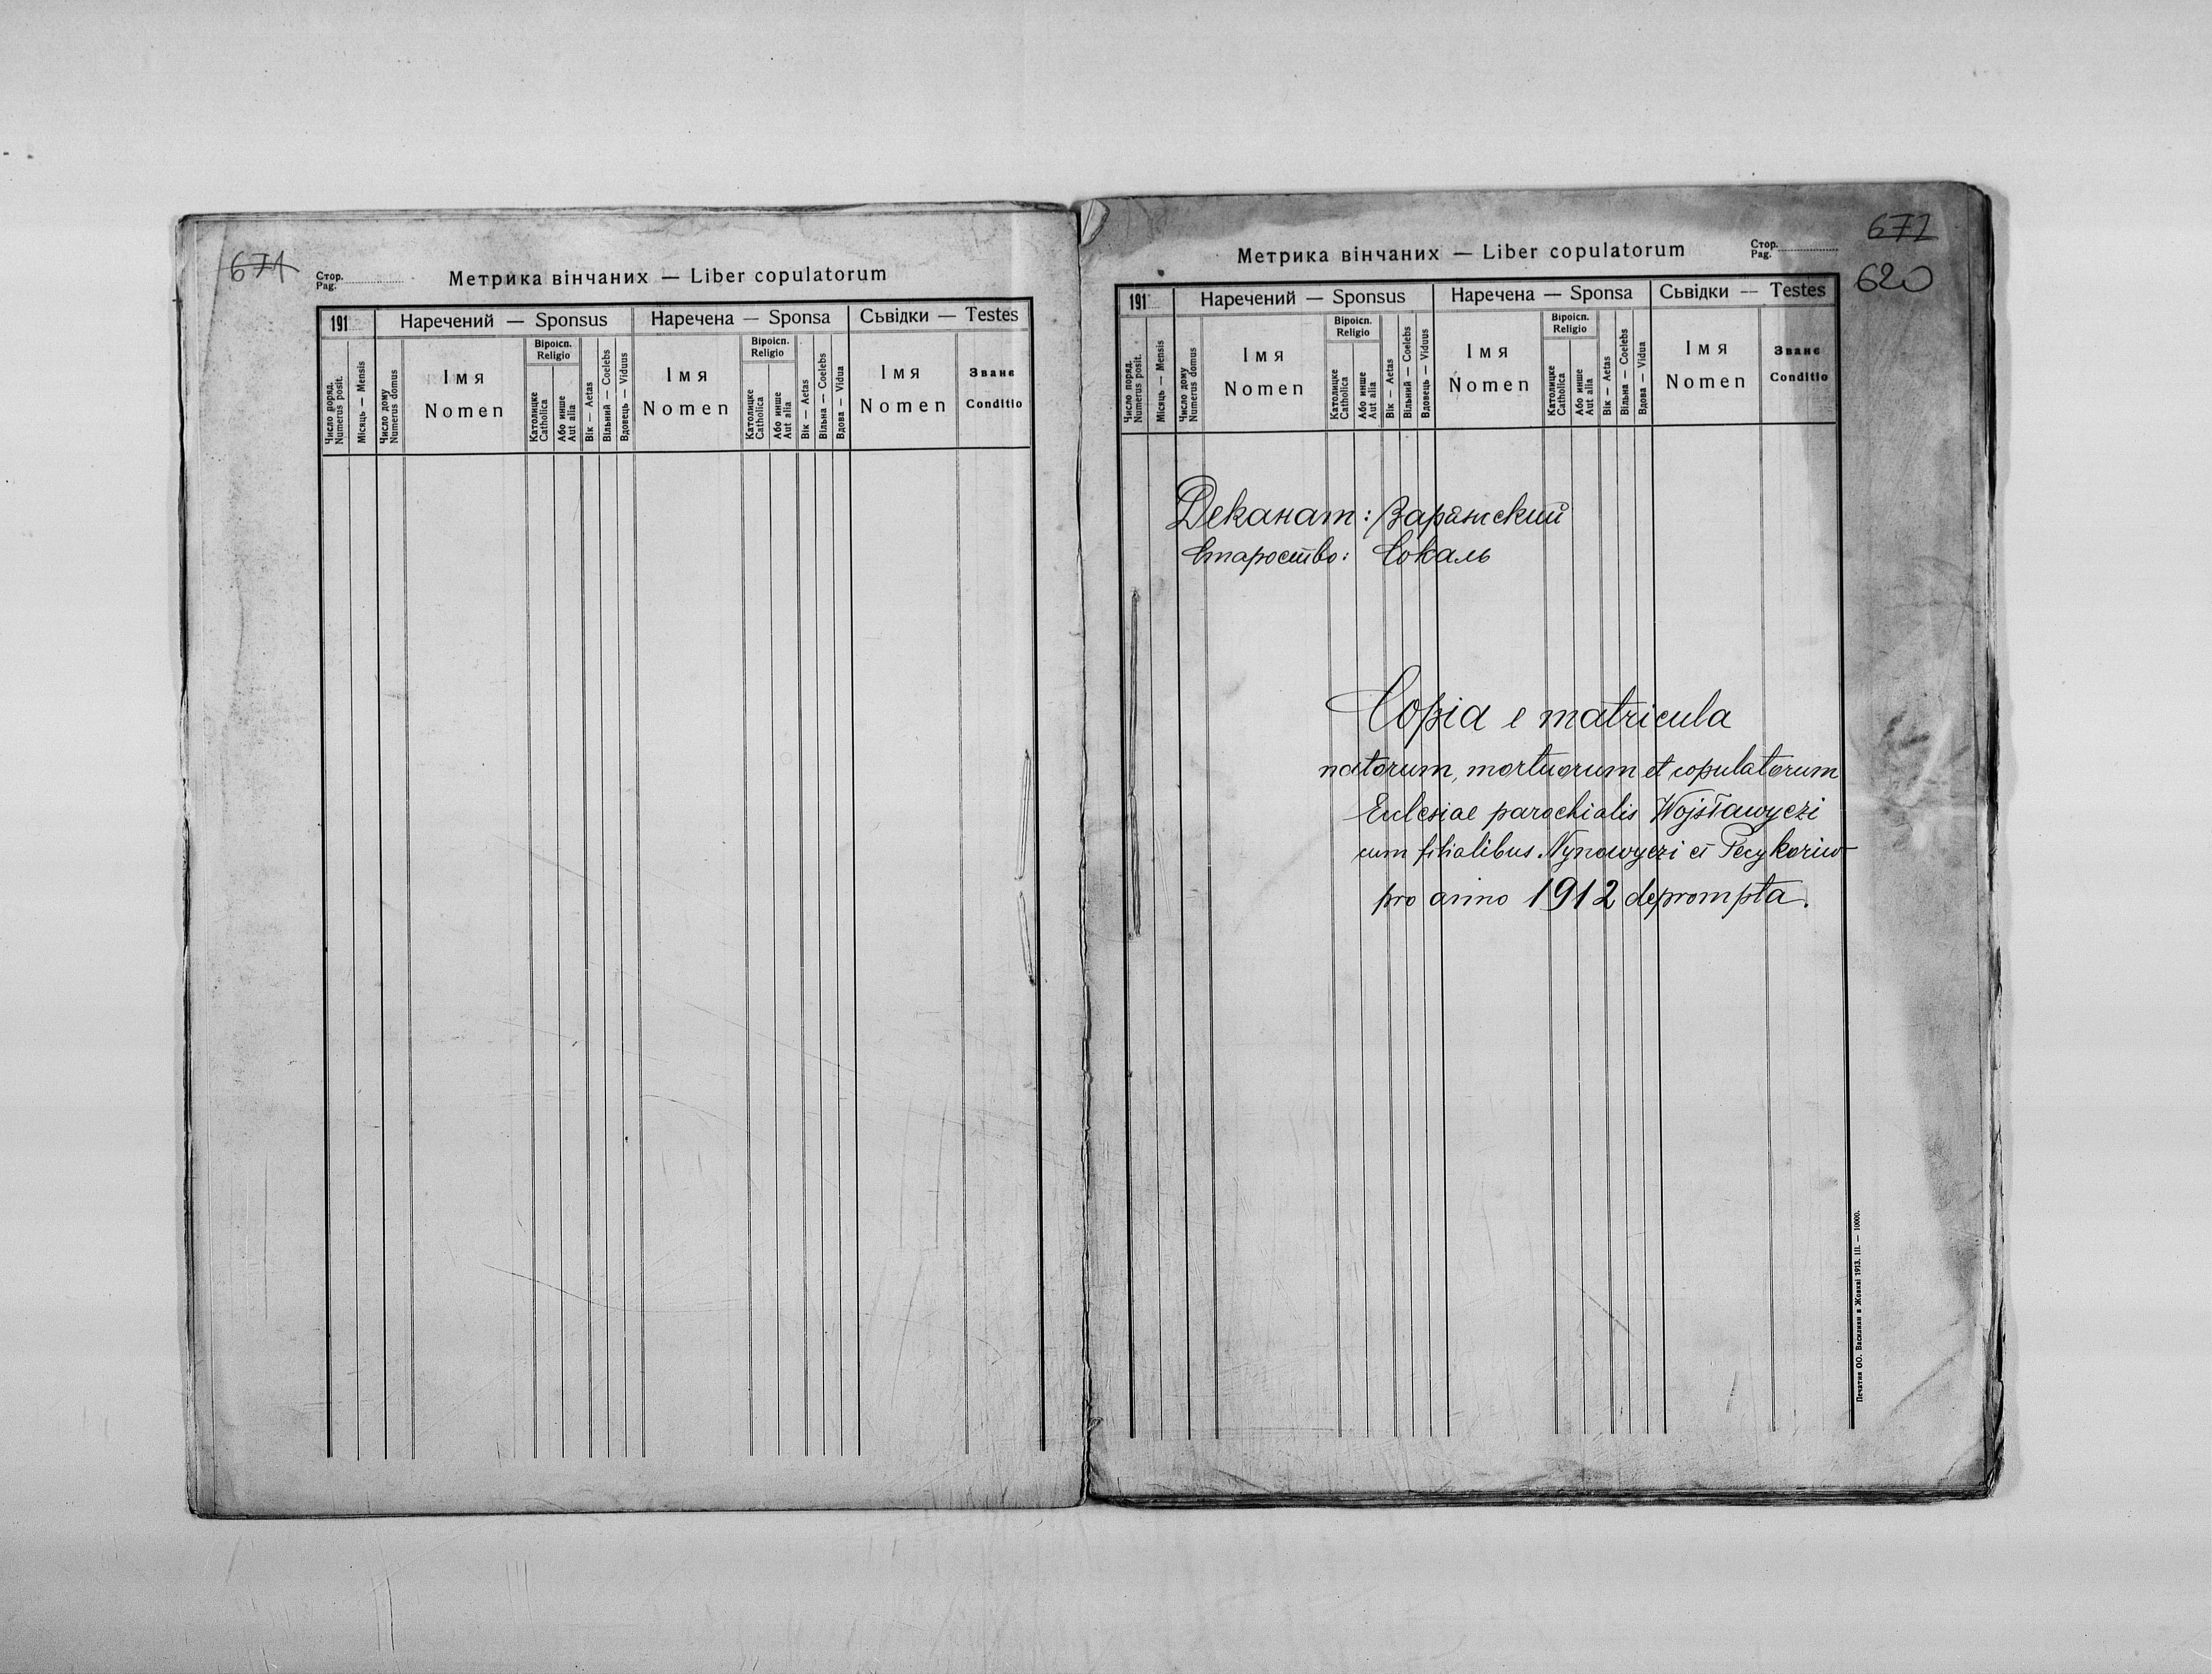 671
Стор.
Pag.
Метрика вінчаних — Liber copulatorum
191
Наречений — Sponsus
Наречена — Sponsa
Сьвідки — Testes
Число поряд.
Numerus posit.
Місяць — Mensis
Число дому
Numerus domus
Імя
Nomen
Віроісп.
Religio
Католицке
Catholica
Або инше
Aut alia
Вік — Aetas
Вільний — Coelebs
Вдовець — Viduus
Імя
Nomen
Віроісп.
Religio
Католицке
Catholica
Або инше
Aut alia
Вік — Aetas
Вільна — Coelebs
Вдова — Vidua
Імя
Nomen
Званє
Conditio
Метрика вінчаних — Liber copulatorum
Стор.
Pag.
620
191
Наречений — Sponsus
Наречена — Sponsa
Сьвідки — Testes
Число поряд.
Numerus posit.
Місяць — Mensis
Число дому
Numerus domus
Імя
Nomen
Віроісп.
Religio
Католицке
Catholica
Або инше
Aut alia
Вік — Aetas
Вільний — Coelebs
Вдовець — Viduus
Імя
Nomen
Віроісп.
Religio
Католицке
Catholica
Або инше
Aut alia
Вік — Aetas
Вільна — Coelebs
Вдова — Vidua
Імя
Nomen
Званє
Conditio
Деканат:
Староство: Сокаль
Copia e matricula
natorum, mortuorum et copulatorum
Ecclesiae parochialis Wojsławyczi
cum filialibus Nynowyczi et
pro anno 1912 deprompta.
Печатня ОО. Василиян в Жовкві 1913. III. — 10000.